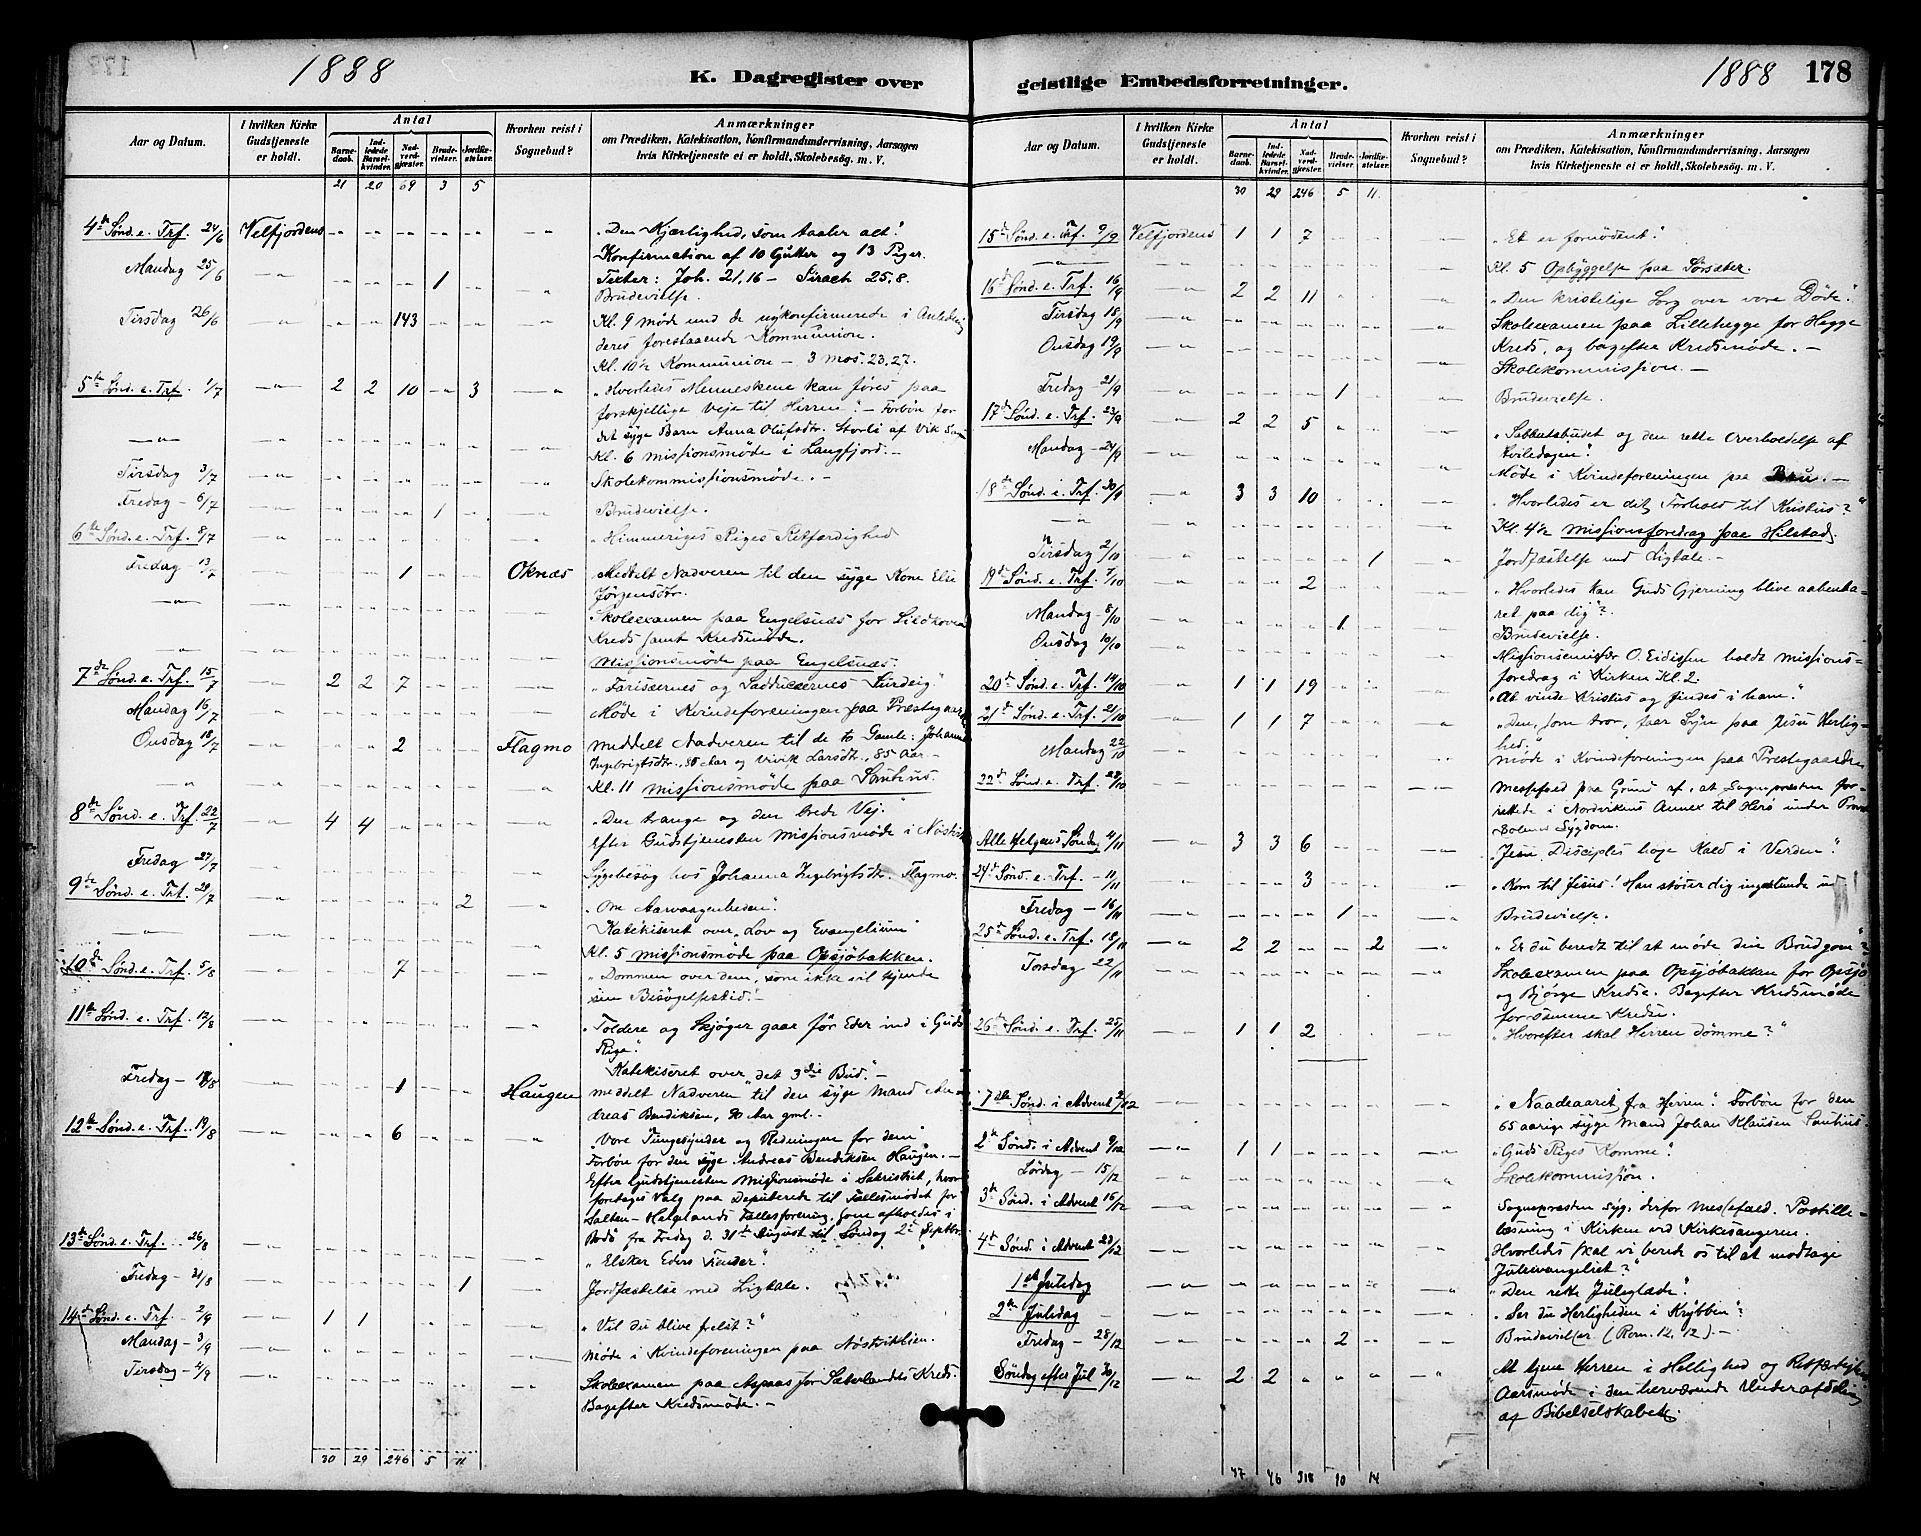 1888
K. Dagregister over
Aar og Datum.
I hvilken Kirke Gudstjeneste er holdt.
Antal
Barnedaab.
Indledede Barselkvinder.
Nadverdgjæster.
Brudevielser.
Jordfæstelser.
Hvorhen reist i Sognebud?
Anmærkninger
om Prædiken, Katekisation, Konfirmandundervisning, Aarsagen
hvis Kirketjeneste ei er holdt, Skolebesög. m. V.
21 20 69 3 5
4de Sønd. e. Trf. 24/6 Velfjordens „Den Kjærlighed, som taaler alt“.
Konfirmation af 10 Gutter og 13 Piger.
Mandag 25/6 1 Texter: Joh. 21,16 – Sirach 25,8.
Brudevielse.
Tirsdag 26/6 143 Kl. 9 Møde med de nykonfirmerede i Anledning
deres forestaaende Kommunion.
Kl. 10½ Kommunion – 3 Mos. 23,27.
5te Sønd. e. Trf. 1/7 2 2 10 3 „Hvorledes Menneskene kan føres paa
forskjellige Veje til Herren“. – Forbøn for
det syge Barn Anna Olufsdtr. Storli af Vik
Kl. 6 Missionsmøde i Langfjord. –
Tirsdag 3/7 Skolekommissionsmøde. –
Fredag – 6/7 1 Brudevielse.
6te Sønd. e. Trf. 8/7 „Himmeriges Riges Retfærdighed
Fredag 13/7 1 Oknæs Meddelt Nadveren til den syge Kone Else
Jørgensdtr.
Skoleexamen paa Engelsnæs for
Kreds samt Kredsmøde.
Missionsmøde paa Engelsnæs.
7de Sønd. e. Trf. 15/7 2 2 7 „Farisæernes og Saddukæernes Surdeig“
Mandag 16/7 Møde i Kvindeforeningen paa Præstegaard
Onsdag 18/7 2 Flagmo Meddelt Nadveren til de to Gamle: Johanna
Ingebrigtsdtr., 85 Aar og Larsdtr., 85 Aar –
Kl. 11 Missionsmøde paa Saushus.
8de Sønd. e. Trf. 22/7 4 4 „Den trange og den brede Vej.“
Efter Gudstjenesten Missionsmøde i
Fredag 27/7 Sygebesøg hos Johanna Ingebrigtsdtr. Flagmo.
9de Sønd. e. Trf. 29/7 2 „Om Aarvaagenheden“.
Katekiseret over „Lov og Evangelium“
Kl. 5 Missionsmøde paa Opsjøbakken.
10de Sønd. e. Trf. 5/8 7 „Dommen over dem, som ikke vil kjende
sin Besøgelsestid“ –
11te Sønd. e. Trf. 12/8 „Toldere og Skjøger gaar før Eder ind i Guds
Rige“.
Katekiseret over „det 3die Bud“ –
Fredag – 17/8 1 Haugen Meddelt Nadveren til den syge Mand An-
dreas Bendiksen, 70 Aar gml. –
12te Sønd. e. Trf. 19/8 6 „Vore Tungesynder og Redningen for dem“
Forbøn for den syge Andreas Bendiksen Haugen. –
Efter Gudstjenesten Missionsmøde i Sakristiet, hvor
foretages Valg paa Deputerede til Fællesmødet for
Salten – Helgelands Fællesforening, som afholdes i
Bodø fra Fredag d. 31te August til Søndag 2de Septbr.
13de Sønd. e. Trf. 26/8 „Elsker Eders Fiender“.
Fredag – 31/8 1 Jordfæstelse med Ligtale.
14de Sønd. e. Trf. – 2/9 1 1 „Vil du blive frelst?“
Mandag – 3/9 Møde i Kvindeforeningen paa
Tirsdag – 4/9 Skoleexamen paa Aspaas for Sæterlandets Kreds.
Bagefter Kredsmøde. –
30 29 246 5 11
geistlige Embedsforretninger.
1888 178
Aar og Datum.
I hvilken Kirke Gudstjeneste er holdt.
Antal
Barnedaab.
Indledede Barselkvinder.
Nadverdgjæster.
Brudevielser.
Jordfæstelser.
Hvorhen reist i Sognebud?
Anmærkninger
om Prædiken, Katekisation, Konfirmandundervisning, Aarsagen
hvis Kirketjeneste ei er holdt, Skolebesög. m. V.
30 29 246 5 11
15de Sønd. e. Trf. 9/9 Velfjordens 1 1 7 „Et er fornødent“.
Kl. 5 Opbyggelse paa Sørsæter.
16de Sønd. e. Trf. 16/9 2 2 11 „Den kristelige Sorg over vore Døde“.
Tirsdag 18/9 Skoleexamen paa Lillehegge for Hegge
Kreds, og bagefter Kredsmøde. –
Onsdag 19/9 Skolekommission. –
Fredag – 21/9 1 Brudevielse.
17de Sønd. e. Trf. 23/9 2 2 5 „Sabbatsbudet og den rette Overholdelse af
Hviledagen“.
Mandag – 24/9 Møde i Kvindeforeningen paa
18de Sønd. e. Trf. 30/9 3 3 10 „Hvorledes er dit Forhold til Kristus?“
Kl. 4½ Missionsforedrag paa Hilstad.
Tirsdag 2/10 1 Jordfæstelse med Ligtale –
19de Sønd. e. Trf. 7/10 2 „Hvorledes kan Guds Gjerning blive aabenba-
ret paa dig“?
Mandag – 8/10 1 Brudevielse.
Onsdag 10/10 Missionsemissær O. Eidissen holdt Missions-
foredrag i Kirken Kl. 2.
20de Sønd. e. Trf. 14/10 1 1 19 „At vinde Kristus og findes i ham“.
21de Sønd. e. Trf. 21/10 1 1 7 „Den, som tror, faar Syn paa Jesu Herlig-
hed“.
Mandag 22/10 Møde i Kvindeforeningen paa Prestegaarden
22de Sønd. e. Trf. 28/10 Messefald paa Grund af, at Sognepræsten for-
rettede i Nordvikens Annex til Herø under
Sygdom.
Alle Helgens Søndag 4/11 3 3 6 „Jesu Disciples høje Kald i Verden“
24de Sønd. e. Trf. – 11/11 3 „Kom til Jesus! Han støder dig ingenlunde ud“
Fredag – 16/11 1 Brudevielse.
25de Sønd. e. Trf. 18/11 2 2 2 „Er du beredt til at møde din Brudgom“?
Torsdag 22/11 Skoleexamen paa Opsjøbakken for Opsjø
og Bjørge Kredse. Bagefter Kredsmøde
for samme Kredse.
26de Sønd. e. Trf. 25/11 1 1 2 „Hvorefter skal Herren dømme?“
Sønd. i Advent 2/12 „Naadeaaret fra Herren“. Forbøn for den
65 aarige syge Mand Johan Klausen Saushus.
2de Sønd. i Advent 9/12 1 1 „Guds Riges Komme“.
Lørdag – 15/12 Skolekommission.
3de Sønd. i Advent 16/12 Sognepræsten syg, derfor Messefald. Postille-
læsning i Kirken ved Kirkesangeren.
4de Sønd. i Advent 23/12 Hvorledes skal vi berede os til at modtage
Juleevangeliet?“
1ste Juledag „Den rette Juleglæde“.
2den Juledag – „Ser du Herligheden i Krybben“?
Fredag – 28/12 2 Brudevielser (Rom. 12,12). –
Søndag efter Jul 30/12 2 2 At tjene Herren i Hellighed og Retfærdighed
Aarsmøde i den herværende Underafdeling
af Bibelselskabet.
47 46 318 10 14